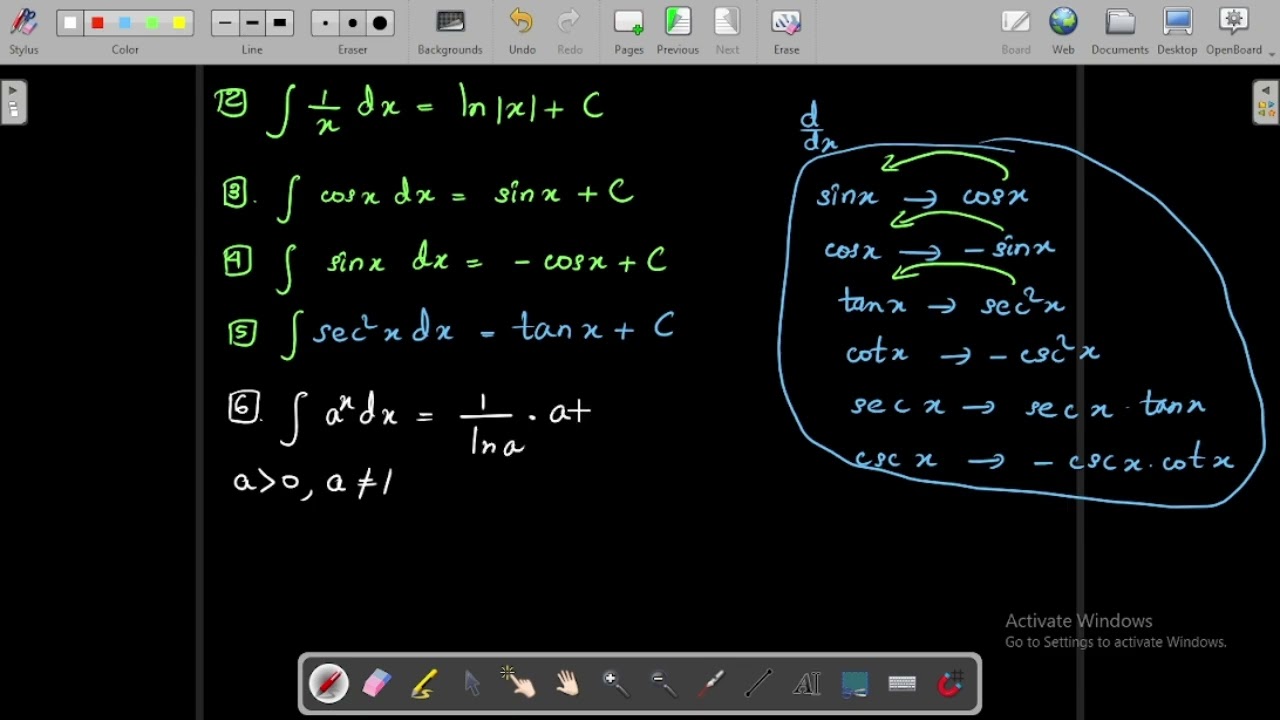 Stylus
Color
Line
Eraser
Backgrounds
Undo
Redo
Pages
Previous
Next
Erase
Board
Web
Documents
Desktop
OpenBoard
2 ∫ 1/x dx = ln|x| + C
3. ∫ cosx dx = sinx + C
4 ∫ sinx dx = - cosx + C
5 ∫ sec²x dx = tanx + C
6. ∫ aˣ dx = 1/ln a · a+
a>0, a≠1
d/dx
sinx → cosx
cosx → - sinx
tanx → sec²x
cotx → - csc²x
secx → secx · tanx
cscx → - cscx · cotx
Activate Windows
Go to Settings to activate Windows.
AI